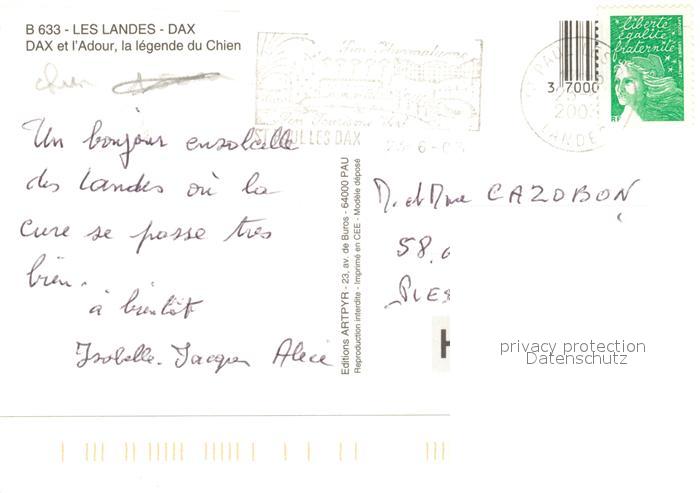 B 633 - LES LANDES - DAX
DAX et l'Adour, la légende du Chien
chien
Un bonjour ensoleillé
des Landes où la
cure se passe très
bien.
à bientôt
Isabelle. Jacques Alice
Editions ARTPYR - 23, av. de Buros - 64000 PAU
Reproduction interdite - Imprimé en CEE - Modèle déposé
ST PAUL LES DAX
3 7000
LANDES
liberté
égalité
fraternité
RF
M. et Mme CAZOBON
58.
PLES
H
privacy protection
Datenschutz